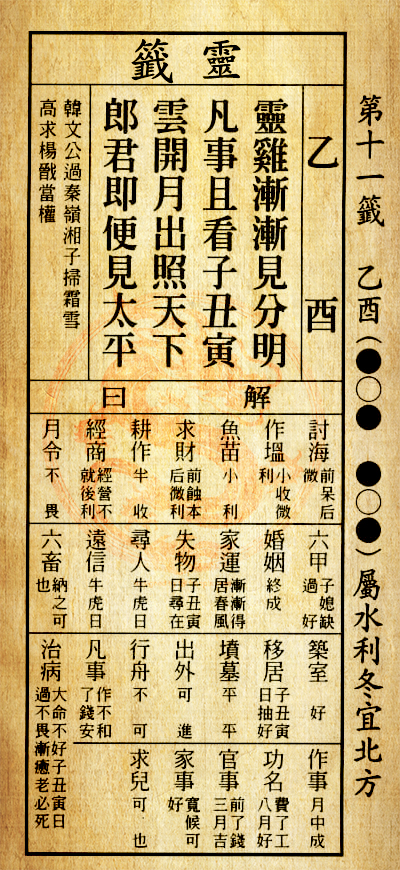 第十一籤 乙酉(●○● ●○●)屬水利冬宜北方
靈籤
乙酉
靈雞漸漸見分明
凡事且看子丑寅
雲開月出照天下
郎君即便見太平
韓文公過秦嶺湘子掃霜雪
高求楊戩當權
解曰
討海 前呆后微
作塭 小收微利
魚苗 小利
求財 前蝕本后微利
耕作 半收
經商 經營不就後利
月令 不畏
六甲 子媳缺過好
婚姻 終成
家運 漸漸得居春風
失物 子丑寅日尋在
尋人 牛虎日
遠信 牛虎日
六畜 納之可也
築室 好
移居 子丑寅日抽好
墳墓 平平
出外 可進
行舟 不可
凡事 作不和了錢安
治病 大命不好子丑寅日過不畏漸癒老必死
作事 月中成
功名 費了工八月好
官事 前了錢三月吉
家事 寬候可好
求兒 可也